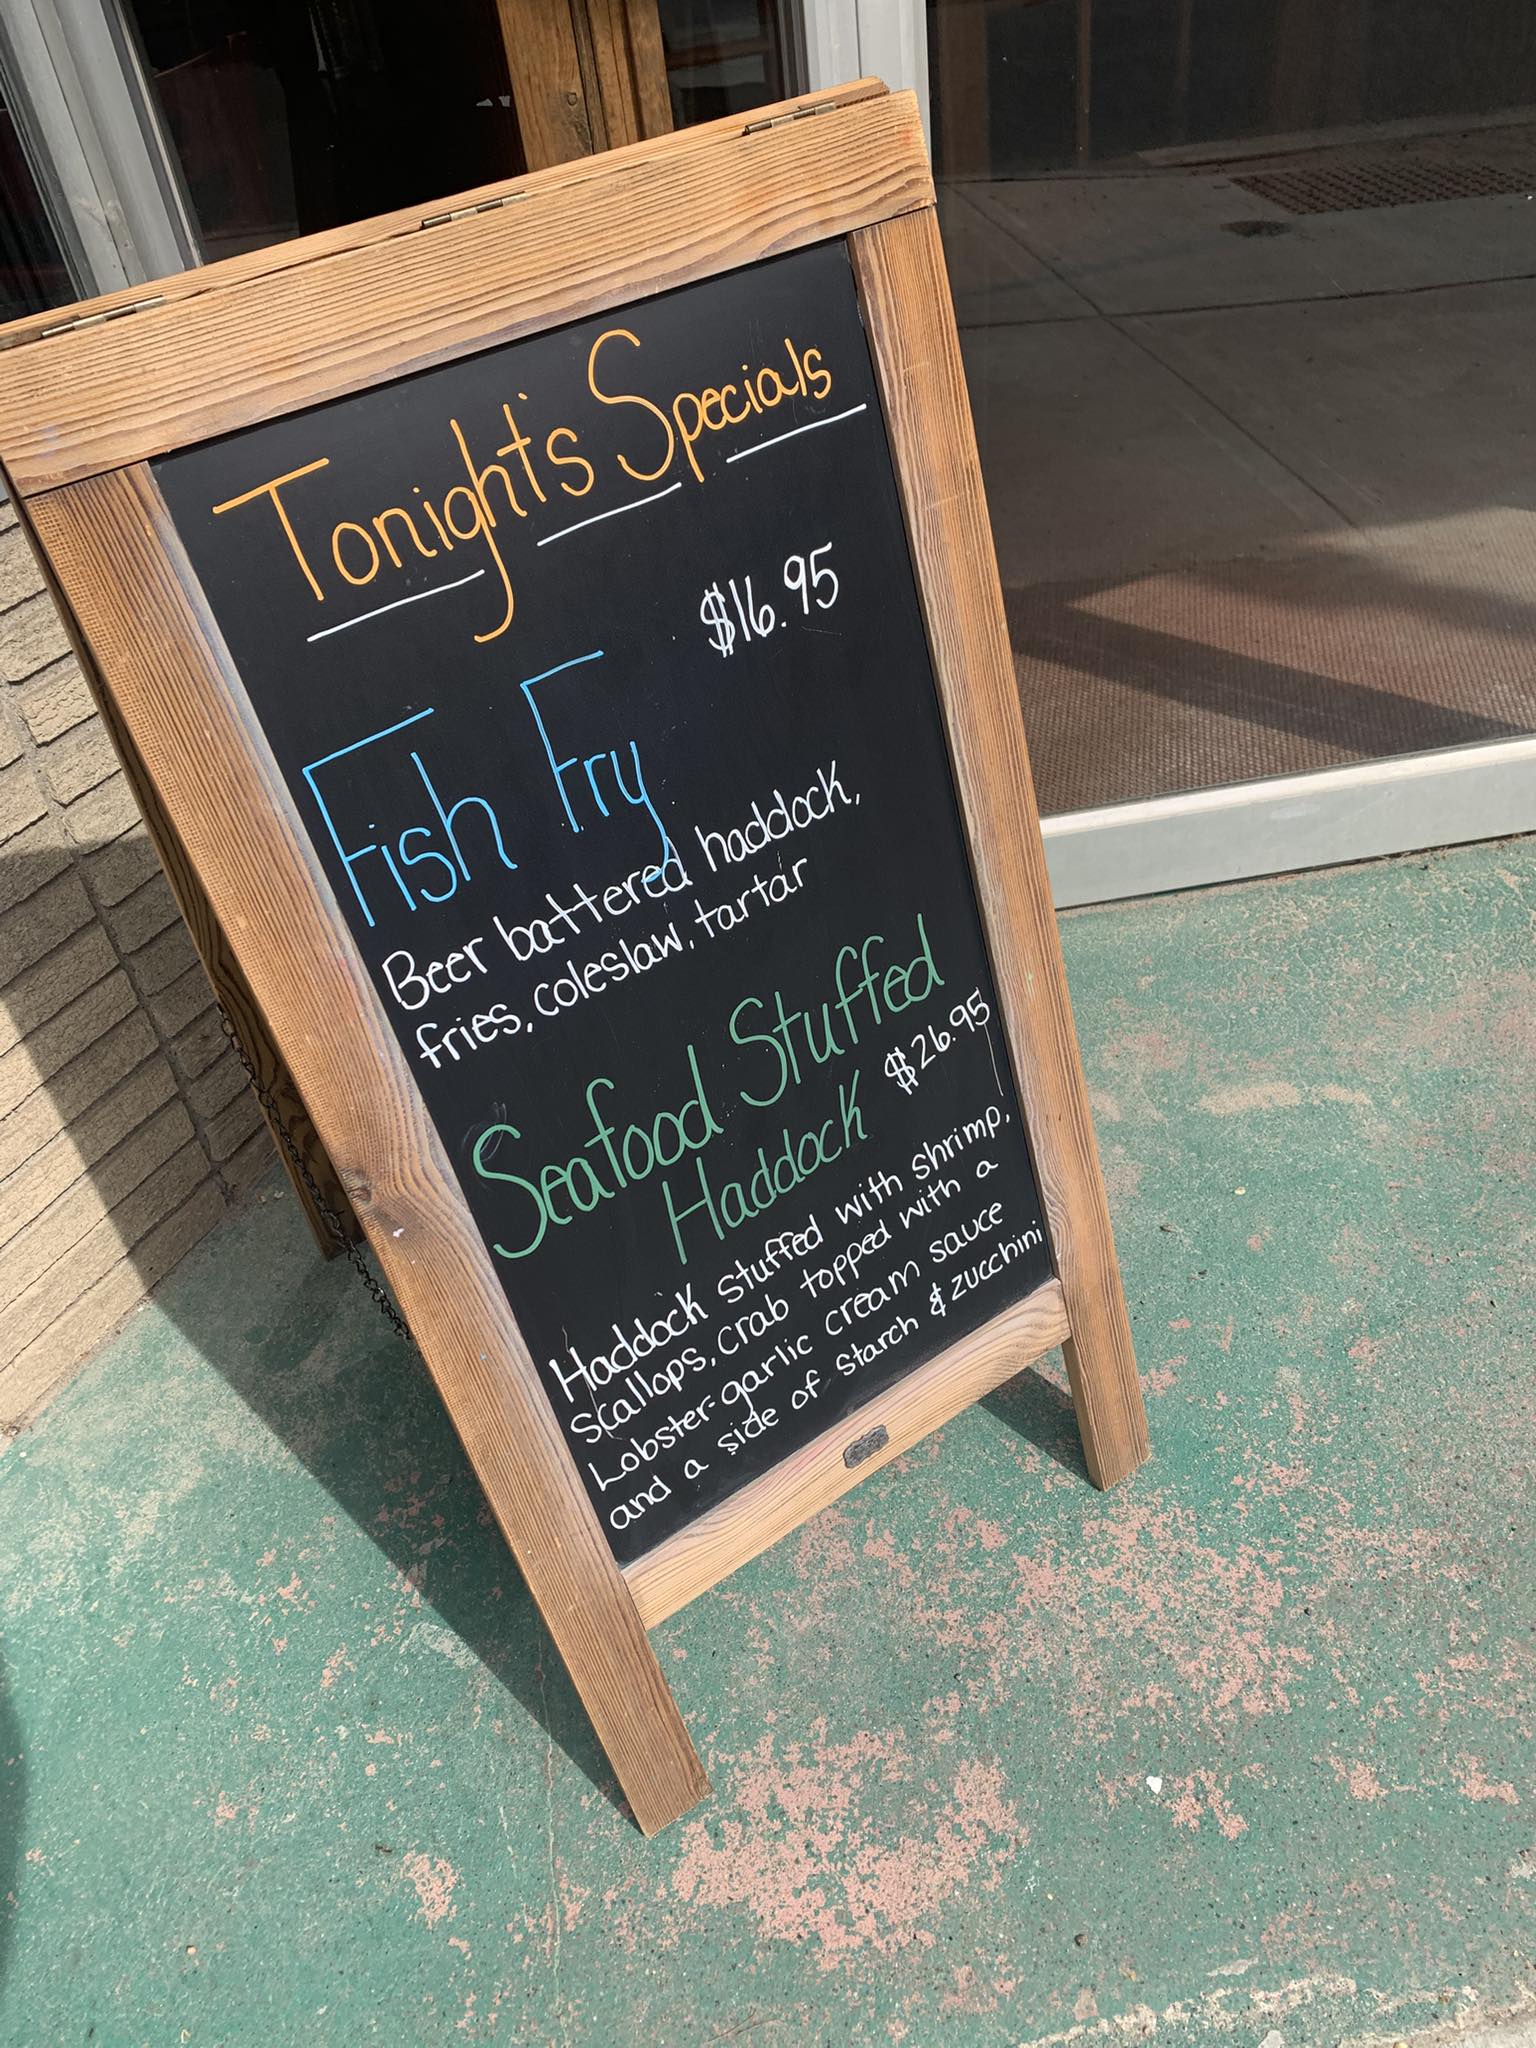 Tonight's Specials
$16.95
Fish Fry
Beer battered haddock,
fries, coleslaw, tartar
Seafood Stuffed
Haddock $26.95
Haddock stuffed with shrimp,
scallops, crab topped with a
Lobster-garlic cream sauce
and a side of starch & zucchini